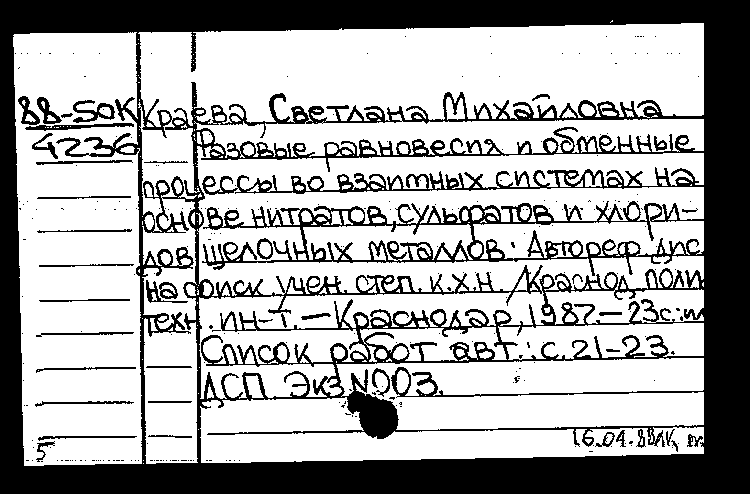 88-50К Краева, Светлана Михайловна.
4236 Фазовые равновесия и обменные
процессы во взаимных системах на
основе нитратов, сульфатов и хлори-
дов щелочных металлов: Автореф. дис.
на соиск. учен. степ. к.х.н. /Краснод. поли
техн. ин-т. — Краснодар, 1987. — 23с.:
Список работ авт.: с. 21-23.
ДСП Экз №003.
16.04.88
5